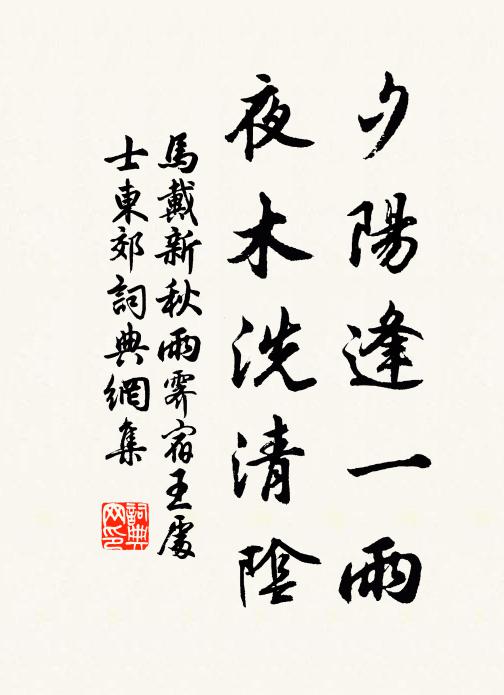 夕陽逢一雨
夜木洗清陰
馬戴新秋雨霽宿王處
士東郊詞典網集
詞典網印